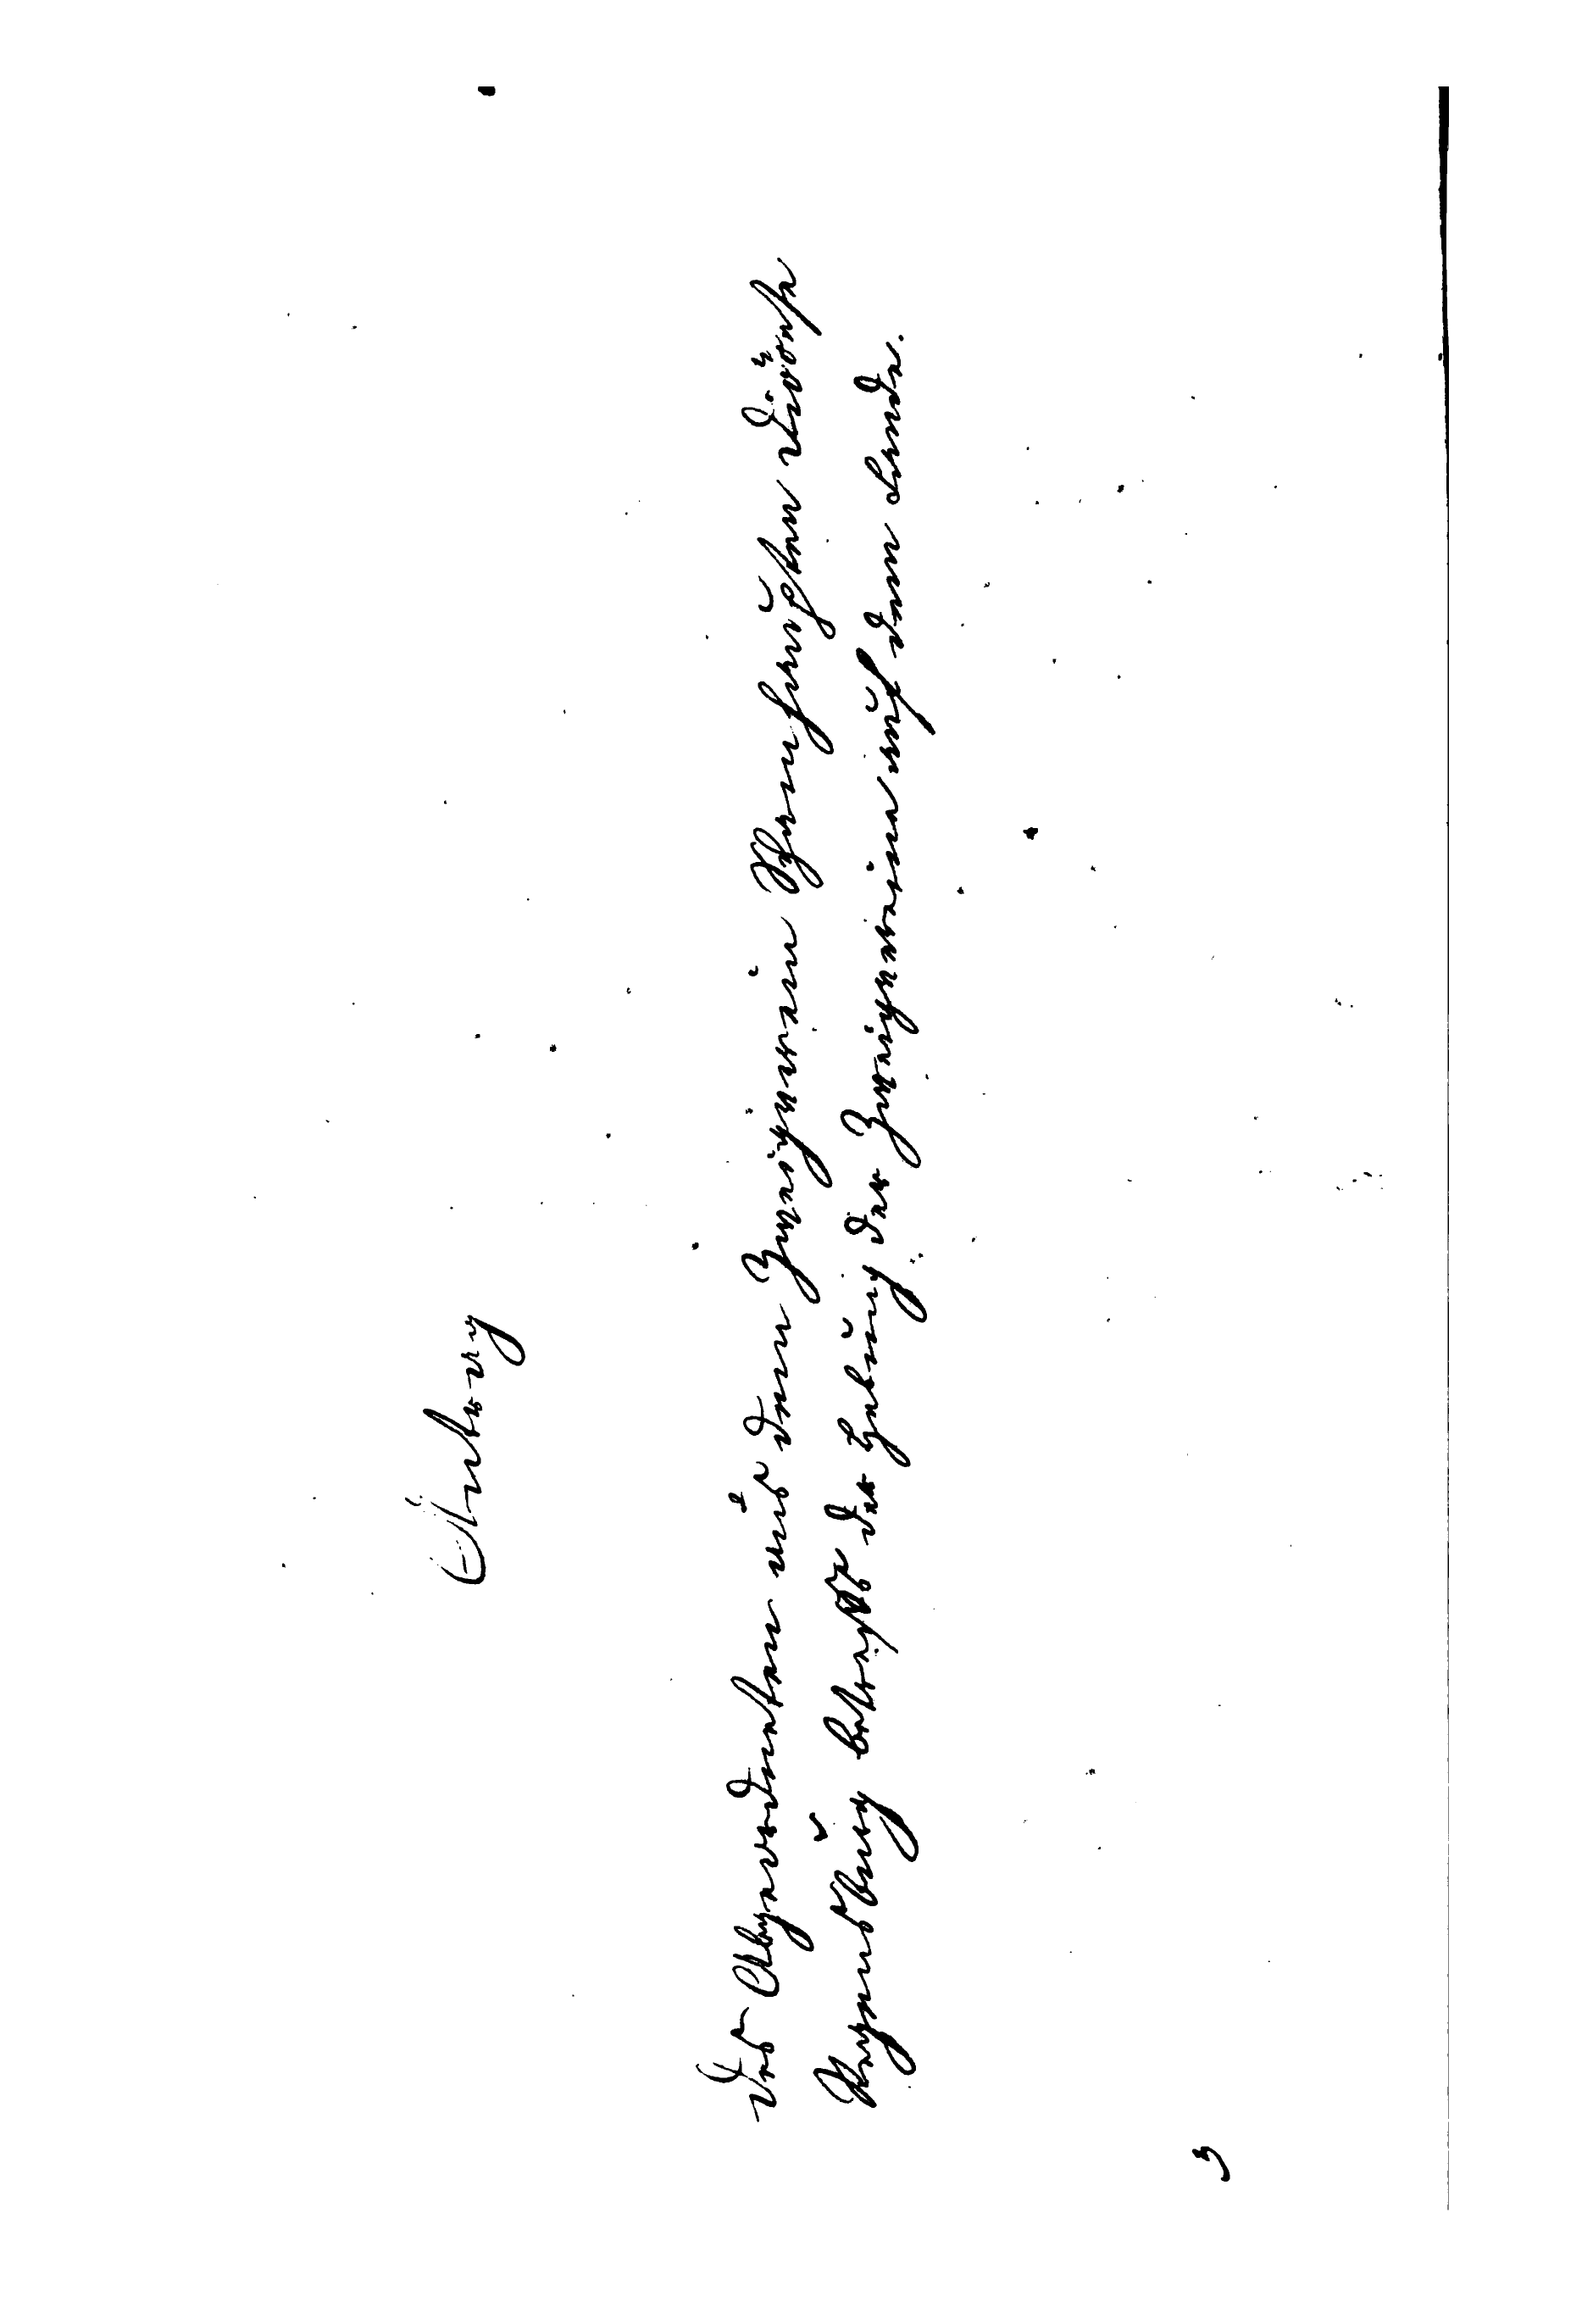 Antrag
des Abgeordneten aus dem Zweigverein Diözese
Regensburg betreffs der Hebung der Zweigvereine auf dem Lande.